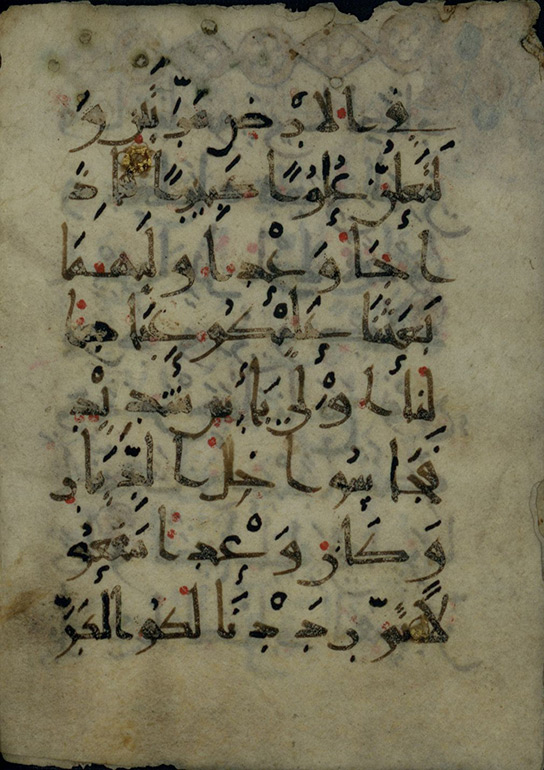 في الارض مرتين و
لتعلن علوا كبيرا فاذ
ا جا وعد اوليهما
بعثنا عليكم عبادا
لنا اولي باس شديد
فجاسوا خلل الديار
وكان وعدا مفعو
لا ثم رددنا لكم الكر